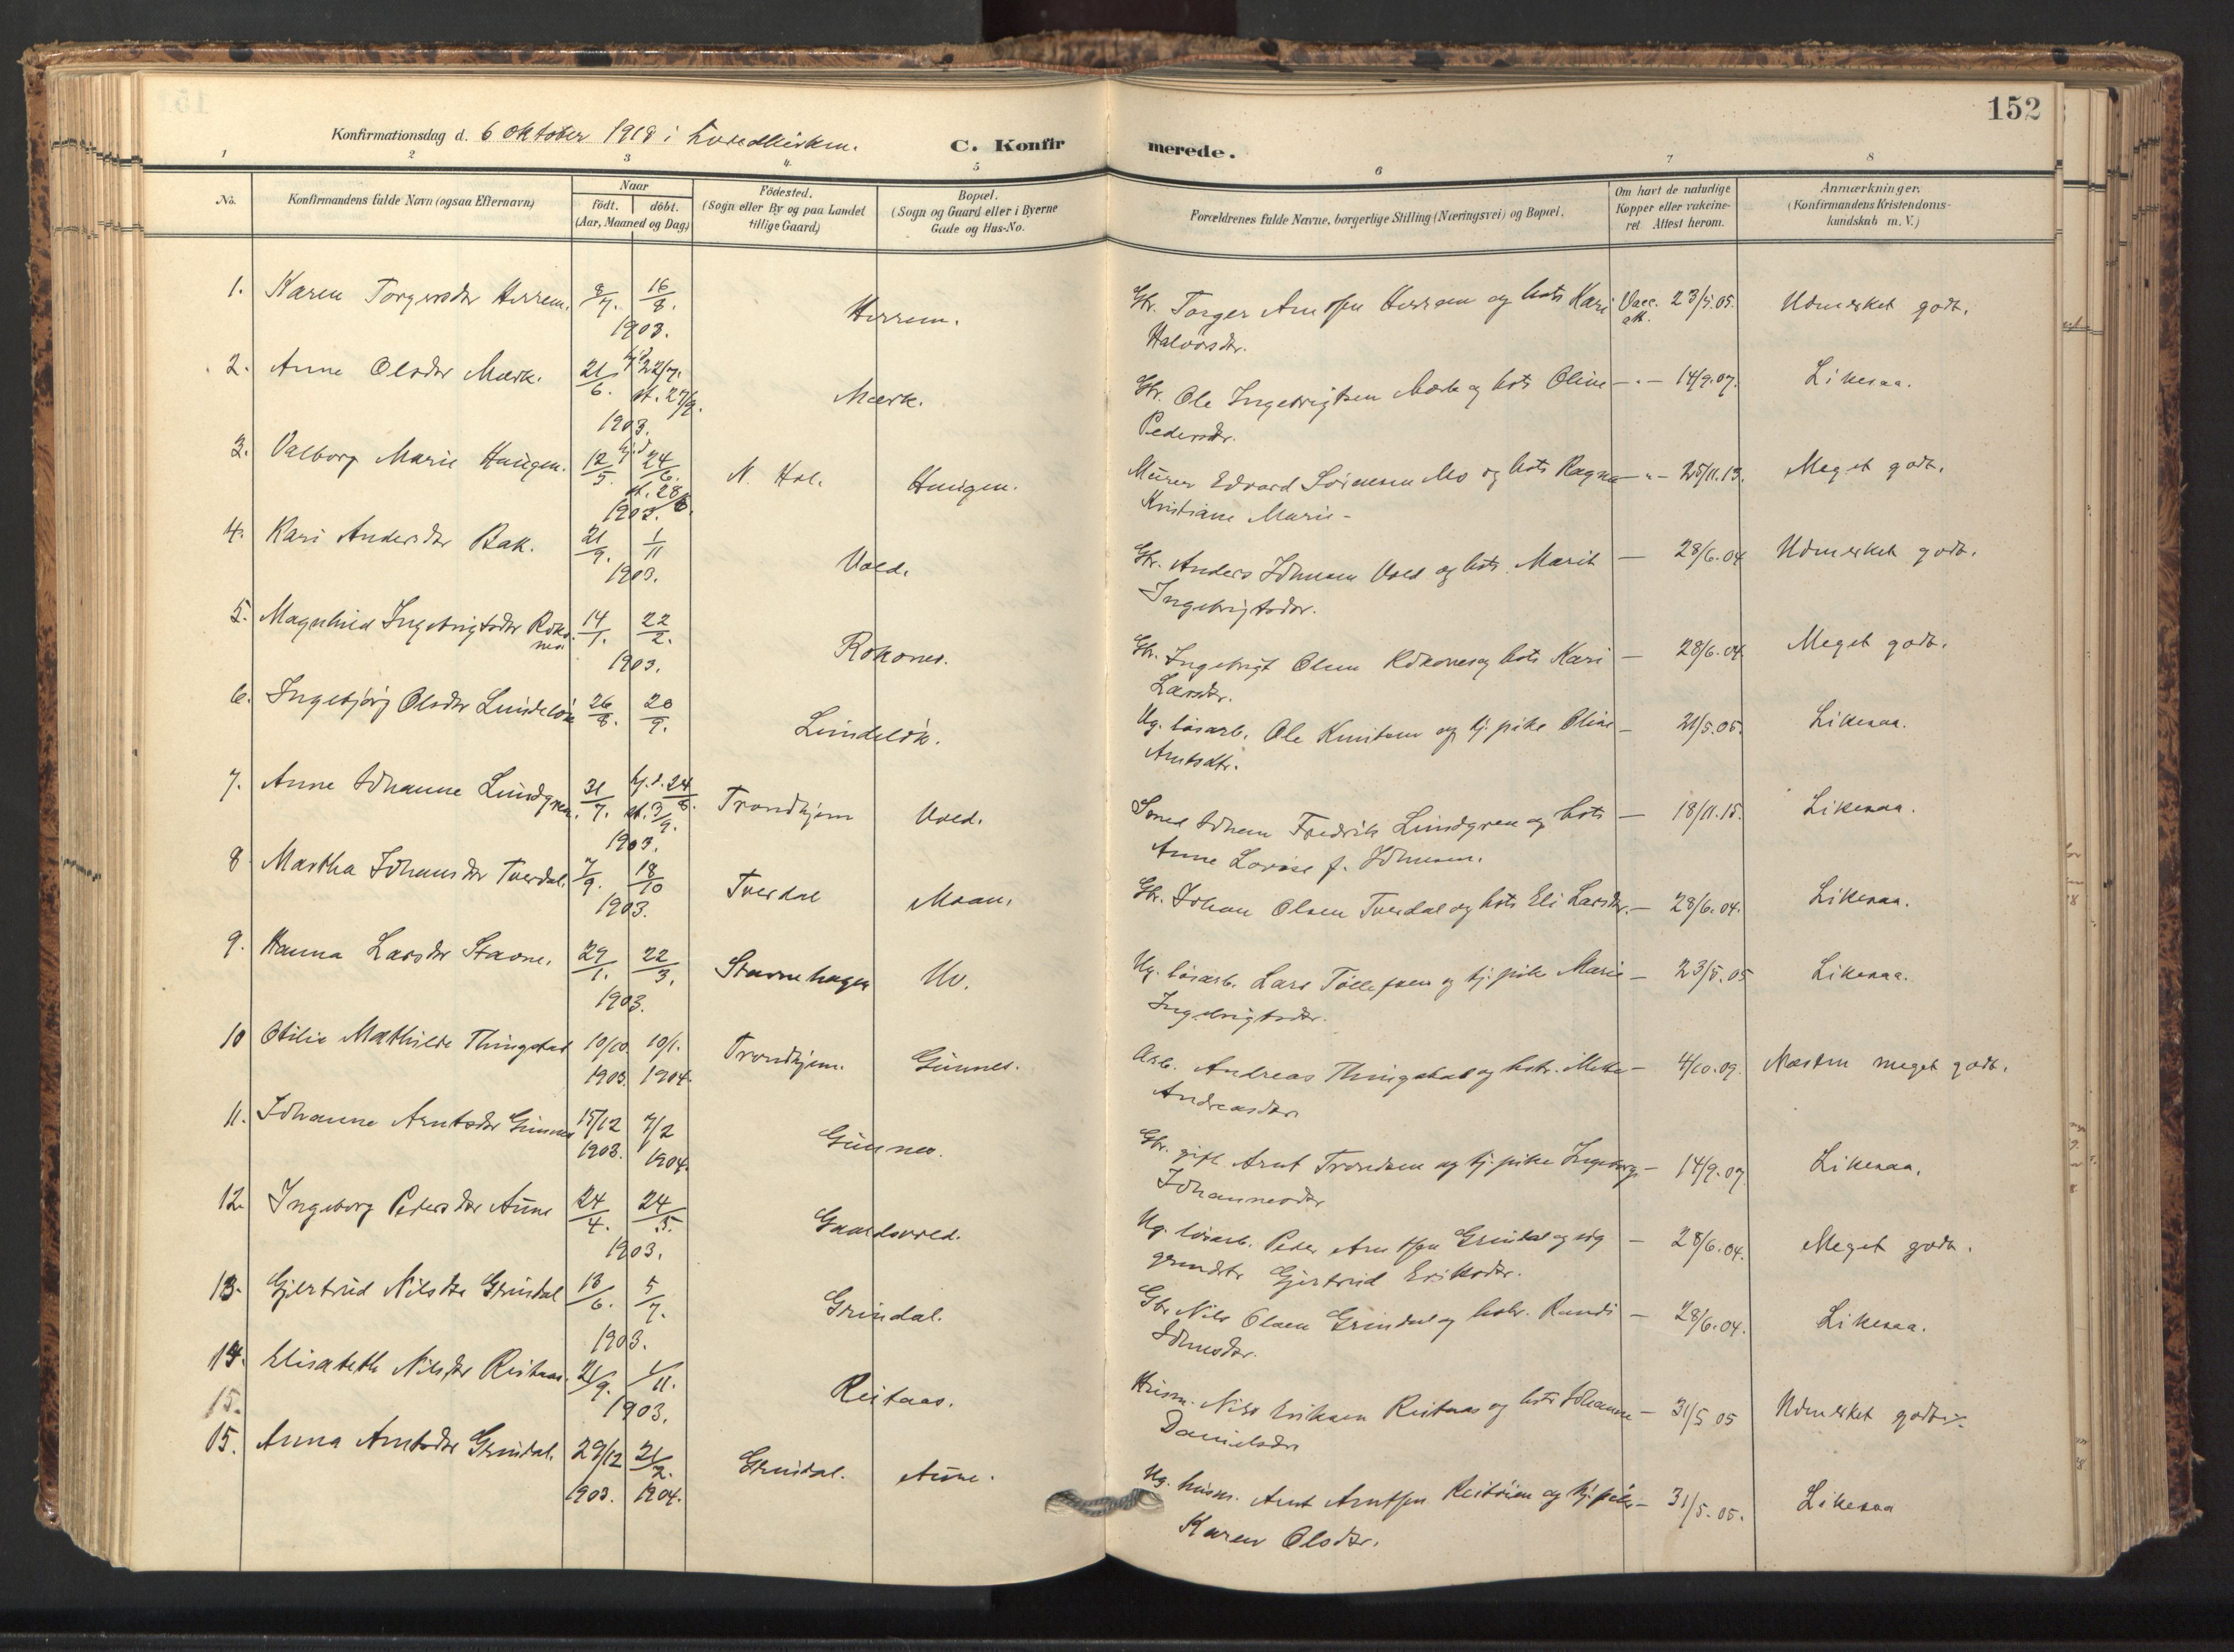 152
Konfirmationsdag d. 6 Oktober 1918 i
C. Konfirmerede.
1 2 3 4 5 6 7 8
No.
Konfirmandens fulde Navn (ogsaa Efternavn)
Naar
födt. döbt.
(Aar, Maaned og Dag)
Födested.
(Sogn eller By og paa Landet
tillige Gaard)
Bopæl.
(Sogn og Gaard eller i Byerne
Gade og Hus-No.
Forældrenes fulde Navne, borgerlige Stilling (Næringsvei) og Bopæl.
Om havt de naturlige
Kopper eller vakcine-
ret Attest herom.
Anmærkninger.
(Konfirmandens Kristendoms-
kundskab m. V.)
1. Karen Torgersdtr Herrem. 8/7. 16/8. 1903. Herrem. Gbr. Torger Arntsen Herrem og hstr Kari Vacc. att. 23/5.05. Udmerket godt.
Halvorsdtr.
2. Anne Olsdtr Mærk. 21/6. hj.d. 22/7. st. 27/9. 1903. Mærk. Gbr. Ole Ingebrigtsen Mærk og hstr Oline - " - 14/9.07. Likesaa.
Pedersdtr.
3. Valborg Marie Haugen. 12/5. hj.d. 24/6. st. 28/6. 1903. N. Hol. Haugen. Murer Edvard Sørensen Mo og hstr Ragna - " - 25/11.13. Meget godt.
Kristiane Marie -
4. Kari Andersdtr Bak. 21/9. 1/11 1903. Vold. Gbr. Anders Johnsen Vold og hstr. Marit - 28/6.04 Udmerket godt.
Ingebrigtsdtr.
5. Magnhild Ingebrigtsdtr Rokones 14/1. 22/2. 1903. Rokones. Gbr. Ingebrigt Olsen Rokones og hstr Kari - 28/6.04. Meget godt.
Larsdtr.
6. Ingebjørg Olsdtr Lundeløk 26/8. 20/9. Lundeløk. Ug. løsarb. Ole Knutsen og tj. pike Oline - 21/5.05. Likesaa.
Arntsdtr.
7. Anne Johanne Lundgren. 31/7. hj.d. 24/8. st. 3/9. 1903. Trondhjem Vold. Smed Johan Fredrik Lundgren og hstr - 18/11.15. Likesaa.
Anne Lovise f. Johnsen.
8 Martha Johansdtr Tverdal. 7/9. 18/10 1903. Tverdal Moan. Gbr. Johan Olsen Tverdal og hstr Eli Larsdtr. - 28/6.04. Likesaa.
9. Hanna Larsdtr Stavne. 29/1. 22/3. 1903. Stavnehagen Uv. Ug. løsarb. Lars Tollefsen og tj. pike Marie - 23/5.05 Likesaa.
Ingebrigtsdtr.
10 Otilie Mathilde Thingstad 10/10. 1903. 10/1. 1904. Trondhjem. Gunnes. Arb. Andreas Thingstad og hstr. Mette - 4/10.09. Næsten meget godt.
Andreasdtr
11. Johanne Arntsdtr Gunnes 15/12 1903. 7/2 1904. Gunnes. Gbr. gift Arnt Trondsen og tj. pike Ingeborg - 14/9.07 Likesaa.
Johannesdtr
12. Ingeborg Pedersdtr Aune 24/4. 24/5. 1903. Gaardsvold. Ug. løsarb. Peder Arntsen Grindal og
Gjertrud Eriksdtr. - 28/6.04. Meget godt.
13. Gjertrud Nilsdtr Grindal 13/6. 5/7. 1903. Grindal. Gbr. Nils Olsen Grindal og hstr. Randi - 28/6.04. Likesaa.
Johnsdtr.
14. Elisabeth Nilsdtr Reitaas. 21/9. 1/11. 1903. Reitaas. Husm. Nils Eriksen Reitaas og hstr Johanne - 31/5 05 Udmerket godt.
Danielsdtr
15.
15. Anna Arntsdtr Grindal. 29/12 1903. 21/2. 1904. Grindal. Aune. Ug. husm. Arnt Arntsen Reitøien og tj. pike - 31/5.05. Likesaa
Karen Olsdtr.